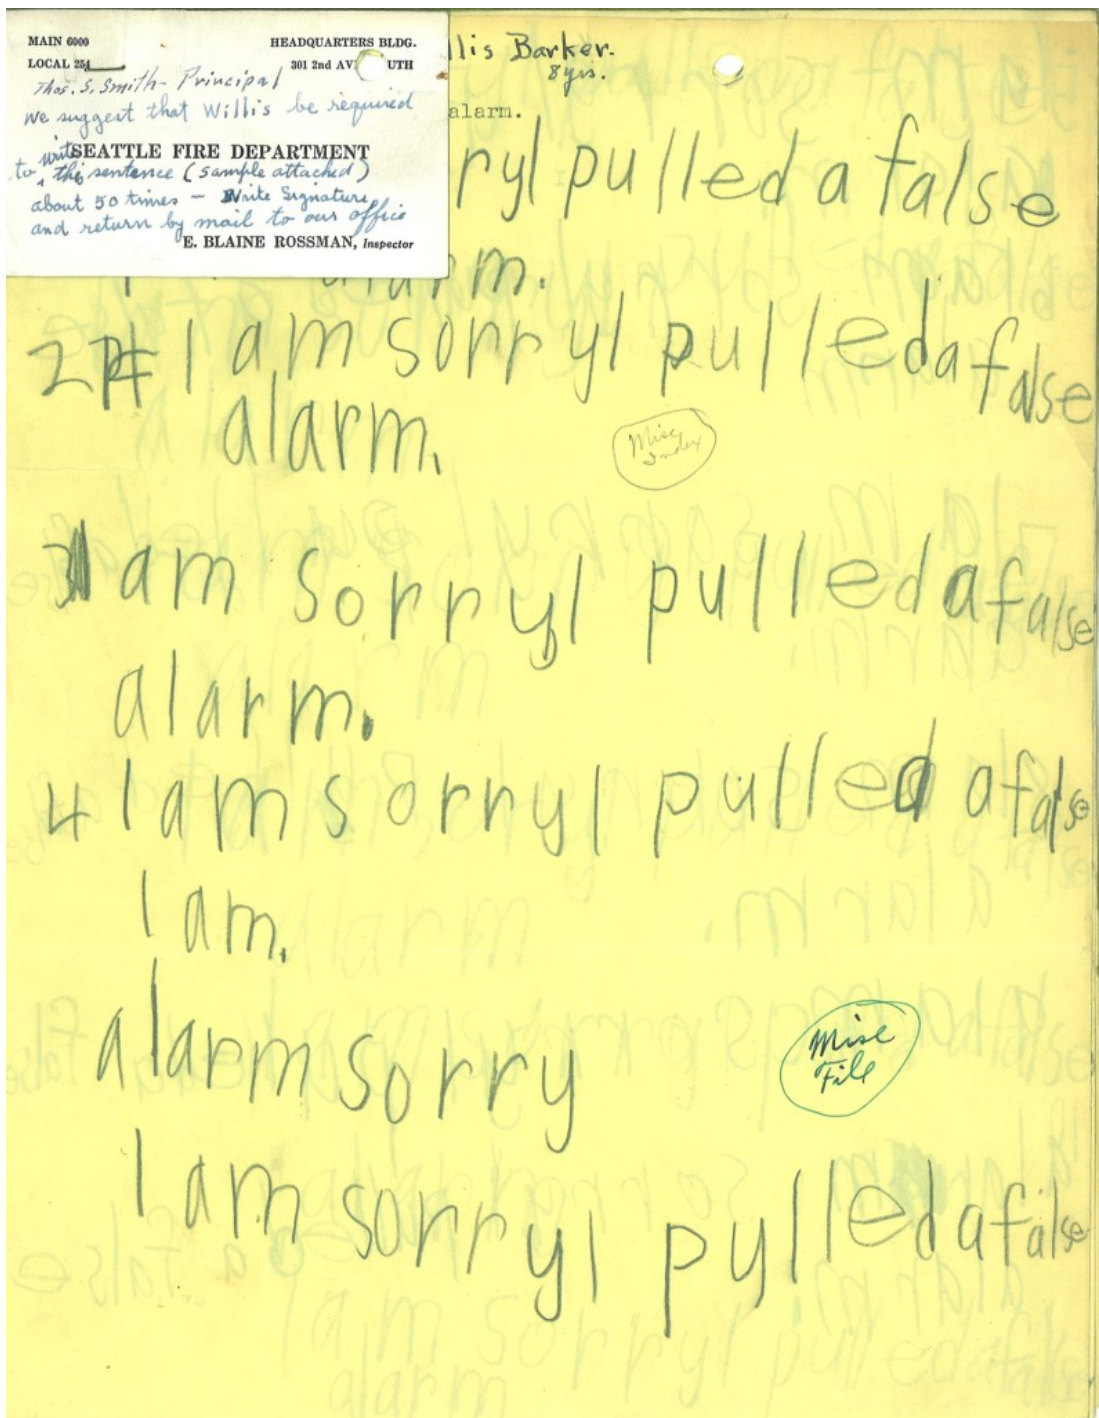 MAIN 6000 HEADQUARTERS BLDG.
LOCAL 254 301 2nd AV UTH
Thos. S. Smith - Principal
We suggest that Willis be required
to write
SEATTLE FIRE DEPARTMENT
this sentence (sample attached)
about 50 times - Write Signature
and return by mail to our office
E. BLAINE ROSSMAN, Inspector
llis Barker.
8 yrs.
alarm.
ry I pulled a false
alarm.
2 I am sorry I pulled a false
alarm.
Misc
Index
3 I am sorry I pulled a false
alarm.
4 I am sorry I pulled a false
l am.
alarm sorry
Misc
File
I am sorry I pylled a false